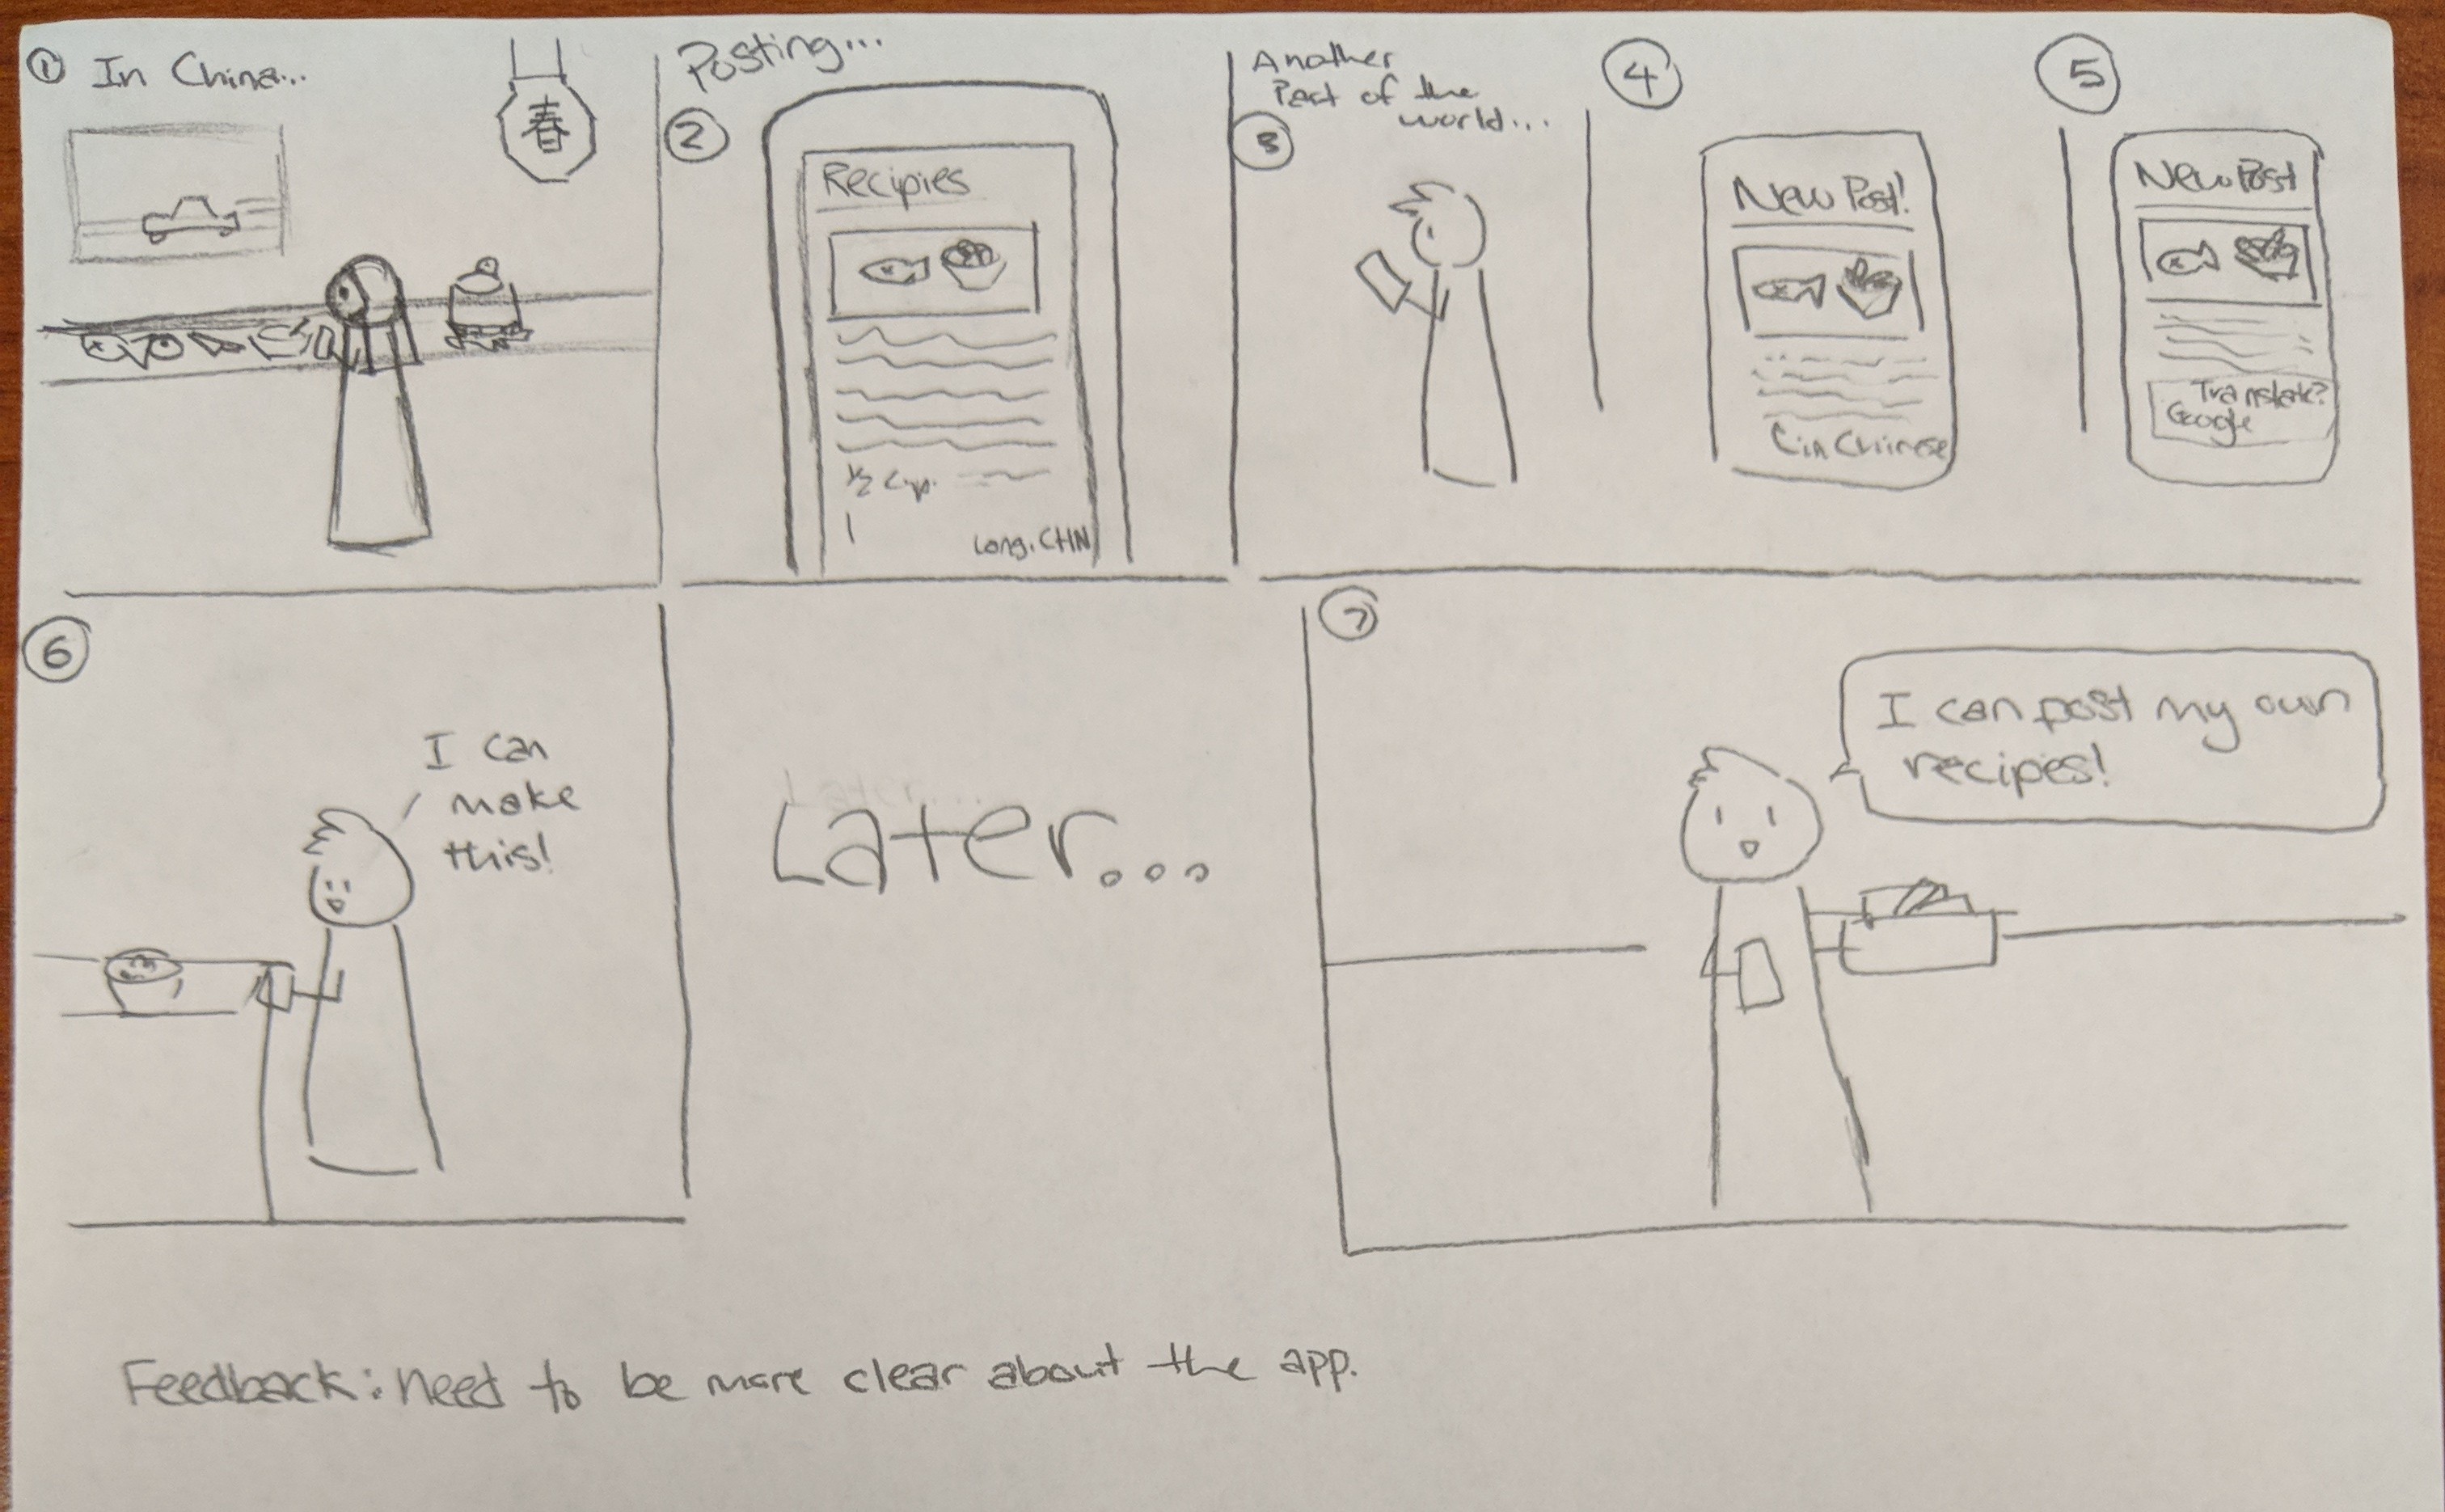 ① In China...
春
Posting...
②
Recipies
1/2 Cup.
Lang. CHN
Another
Part of the
world...
3
④
New Post!
(in Chinese
⑤
New Post
Translate?
Google
⑥
I can
make
this!
Later...
Later...
⑦
I can post my own
recipes!
Feedback: need to be more clear about the app.